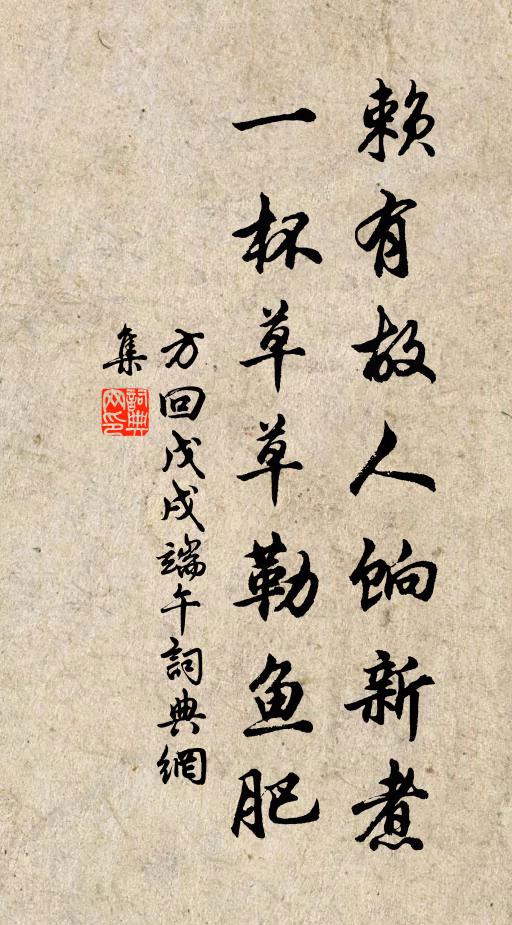 赖有故人饷新煮
一杯草草勒鱼肥
方回戊戌端午詞典網
集
詞典
网印